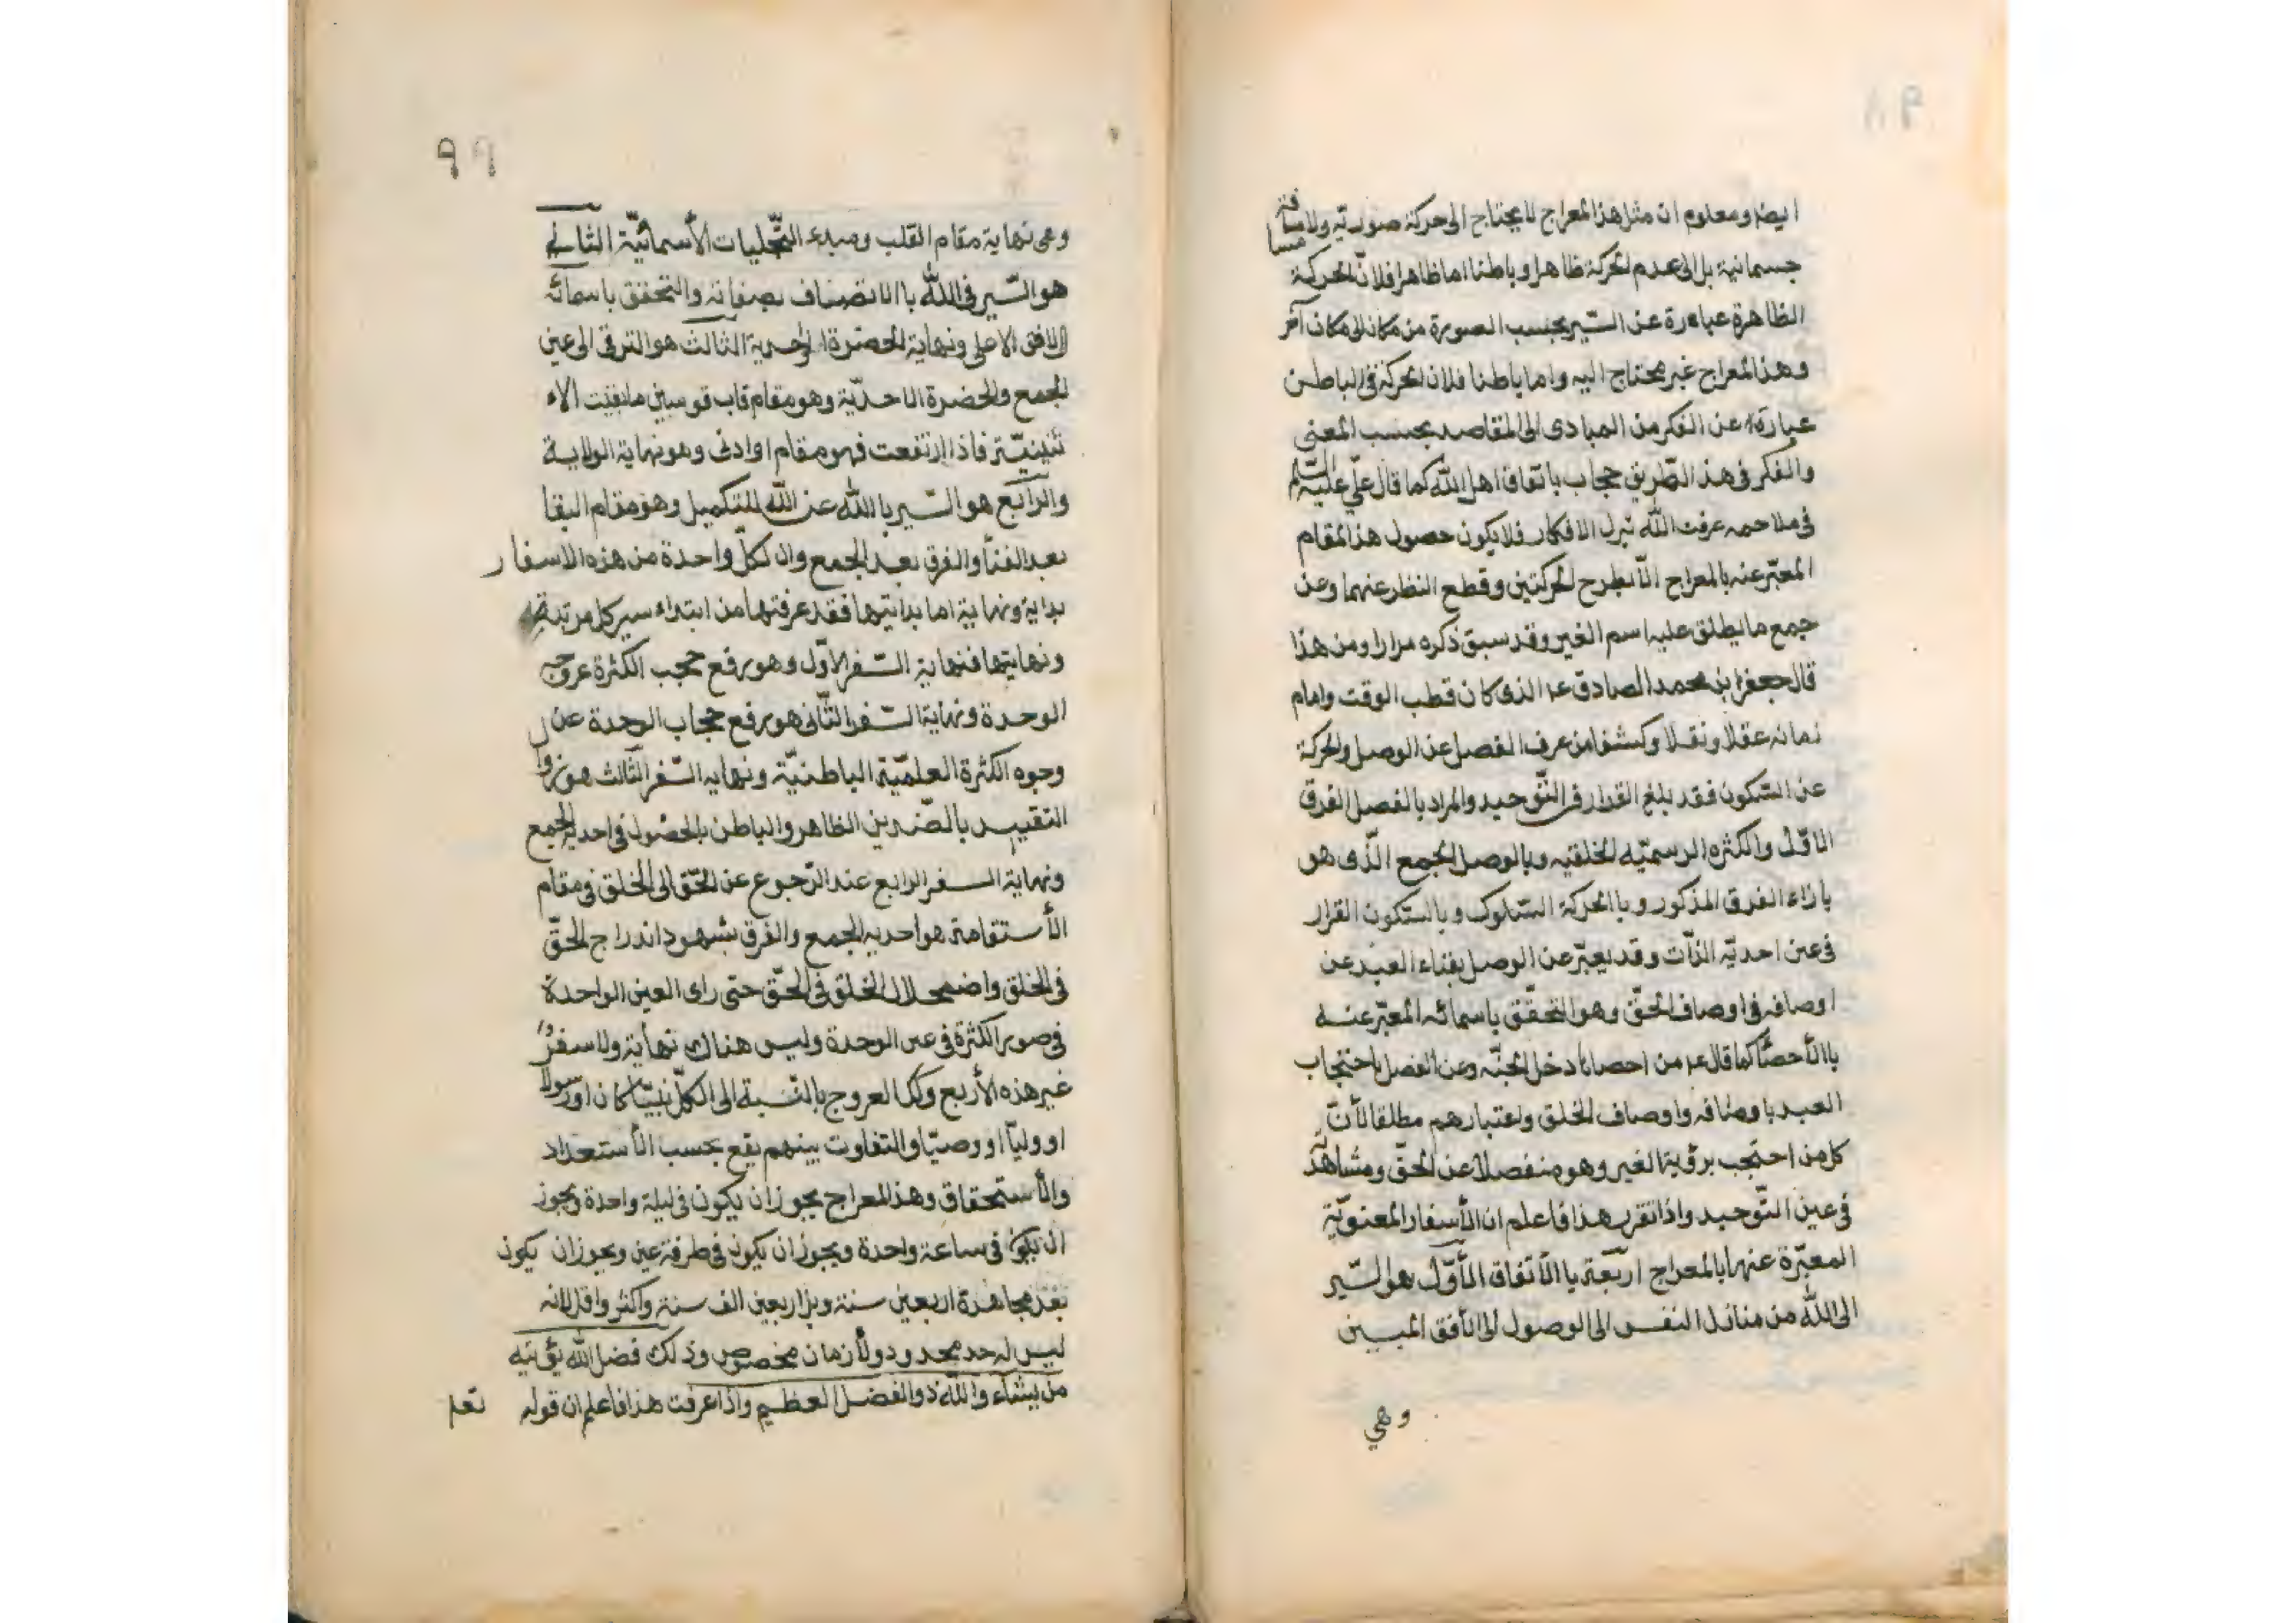 ٩٨
ايضا ومعلوم ان مثل هذا المعراج لا يحتاج الى حركة صورتيه ولا مسافة
جسمانية بل الى عدم الحركة ظاهرا وباطنا اما ظاهرا فلان الحركة
الظاهرة عبارة عن السّير بحسب الصورة من مكان الى مكان آخر
وهذا المعراج غير محتاج اليه واما باطنا فلان الحركة فى الباطن
عبارة عن الفكر من المبادى الى المقاصد بحسب المعنى
والفكر فى هذ الطّريق حجاب باتفاق اهل اللّه كما قال علّي عليه السّلم
فى ملاحمه عرفت اللّه بترك الافكار فلا يكون حصول هذا المقام
المعبّر عنه بالمعراج الّا بطرح الحركتين وقطع النظر عنهما وعن
جمع ما يطلق عليه اسم الغير وقد سبق ذكره مرارا ومن هذا
قال جعفر ابن محمد الصادق عم الذى كان قطب الوقت وامام
زمانه عقلا ونقلا وكشفا من عرف الفصل عن الوصل والحركة
عن السّكون فقد بلغ القرار فى التّوحيد والمراد بالفصل الفرق
الاوّل والكثره الرسميّه الخلقيه وبالوصل الجمع الّذى هو
بازاء الفرق المذكور و باالحركة السّلوك وبالسّكون القرار
فى عين احديّه الذّات وقد يعبّر عن الوصل بفناء العبد عن
اوصافه فى اوصاف الحقّ وهو التحقّق باسمائه المعبّر عنه
باالأحصّا كما قال عم من احصاها دخل الجنّه وعن الفصل باحتجاب
العبد باوصافه واوصاف الخلق واعتبارهم مطلقا لأنّ
كل من احتجب برؤية الغير وهو منفصلا عن الحقّ ومشاهدته
فى عين التّوحيد واذا تقرر هذا فاعلم ان الأسفار المعنويّة
المعبّرة عنها بالمعراج اربعة باالأتفاق الأوّل هو السّير
الى اللّه من منازل النفس الى الوصول الى الأفق المبين
وهي
٩٩
وهى نهاية مقام القلب ومبدء التّجليات الأسمائيّة الثانى
هو السّير فى اللّه باالاتصاف بصفاته والتحقق باسمائه
الى الافق الاعلى ونهاية الحضرة الواحدية الثالث هو الترقى الى عين
الجمع والحضرة الاحديّة وهو مقام قاب قوسين ما بقيت الاء
ثنينيّة فاذا ارتفعت فهو مقام او ادنى وهو نهاية الولاية
والرّابع هو السّير باللّه عن اللّه للتكميل وهو مقام البقا
بعد الفنآ والفرق بعد الجمع وان لكلّ واحدة من هذه الاسفار
بداية ونهاية اما بدايتها فقد عرفتها من ابتداء سير كل مرتبة
ونهايتها فنهاية السّفر الاوّل وهو رفع حجب الكثرة عن وجه
الوحدة ونهاية السّفر الثّانى هو رفع حجاب الوحدة عن
وجوه الكثرة العلميّة الباطنيّة ونهايه السّفر الثّالث هو زوال
التقييد بالضّدين الظاهر والباطن بالحصول فى احدية الجمع
ونهاية السفر الرابع عند الرّجوع عن الحّق الى الخلق فى مقام
الأستقامة هو احديه الجمع والفرق بشهود اندراج الحقّ
فى الخلق واضمحلال الخلق فى الحّق حتى راى العين الواحدة
فى صور الكثرة فى عين الوحدة وليس هناك نهاية ولا سفرٌ
غير هذه الأربع وكل العروج بالنّسبة الى الكلّ نبيّا كان او رسولا
او وليّا او وصيّا والتفاوت بينهم يقع بحسب الأستعداد
والأستحقاق وهذا المعراج يجوز ان يكون فى ليلة واحدة ويجوز
ان يكون فى ساعة واحدة ويجوز ان يكون فى طرفة عين ويجوز ان يكون
بعد مجاهدة اربعين سنة وبل اربعين الف سنة واكثر واقل لانه
ليس له حد محدود ولا زمان مخصوص وذلك فضل اللّه يؤتيه
من يشآء واللّه ذوالفضل العظيم واذا عرفت هذا فاعلم ان قوله تعلى